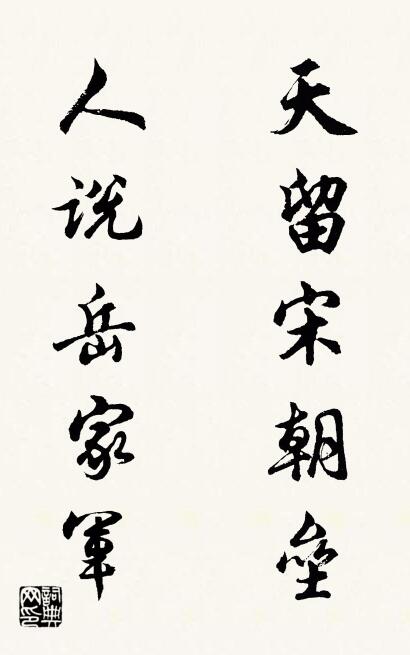 天留宋朝垒
人说岳家军
詞典网印